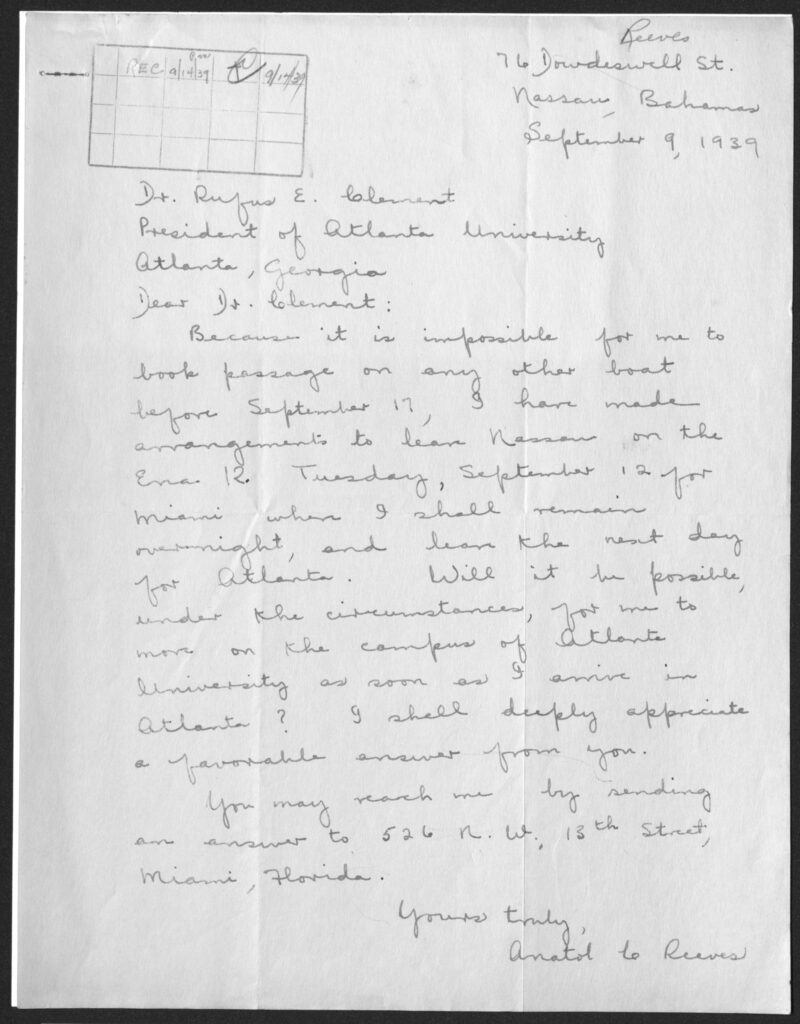 Reeves
REC 9/14/39 9/14/39
76 Dowdeswell St.
Nassau, Bahamas
September 9, 1939
Dr. Rufus E. Clement
President of Atlanta University
Atlanta, Georgia
Dear Dr. Clement:
Because it is impossible for me to
book passage on any other boat
before September 17, I have made
arrangements to leave Nassau on the
Ena K. Tuesday, September 12 for
Miami where I shall remain
overnight, and leave the next day
for Atlanta. Will it be possible,
under the circumstances, for me to
move on the campus of Atlanta
University as soon as I arrive in
Atlanta? I shall deeply appreciate
a favorable answer from you.
You may reach me by sending
an answer to 526 N. W., 13th Street,
Miami, Florida.
Yours truly,
Anatol C Reeves